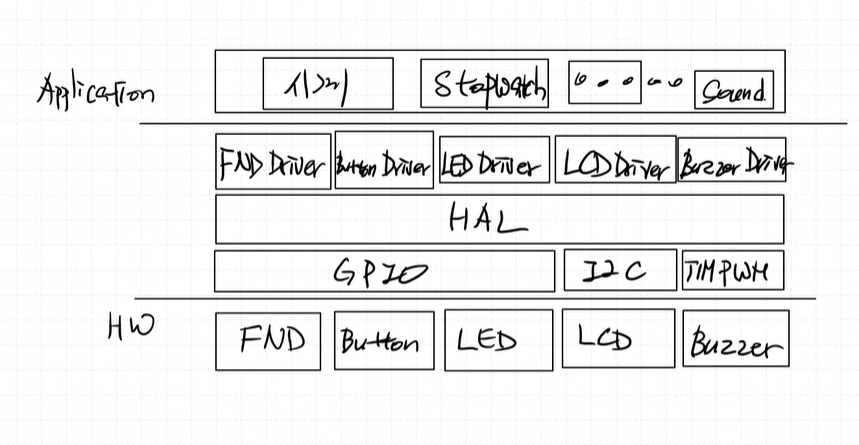 Application 시계 Stopwatch Sound
FND Driver Button Driver LED Driver LCD Driver Buzzer Driver
HAL
GPIO I2C TIM PWM
HW FND Button LED LCD Buzzer